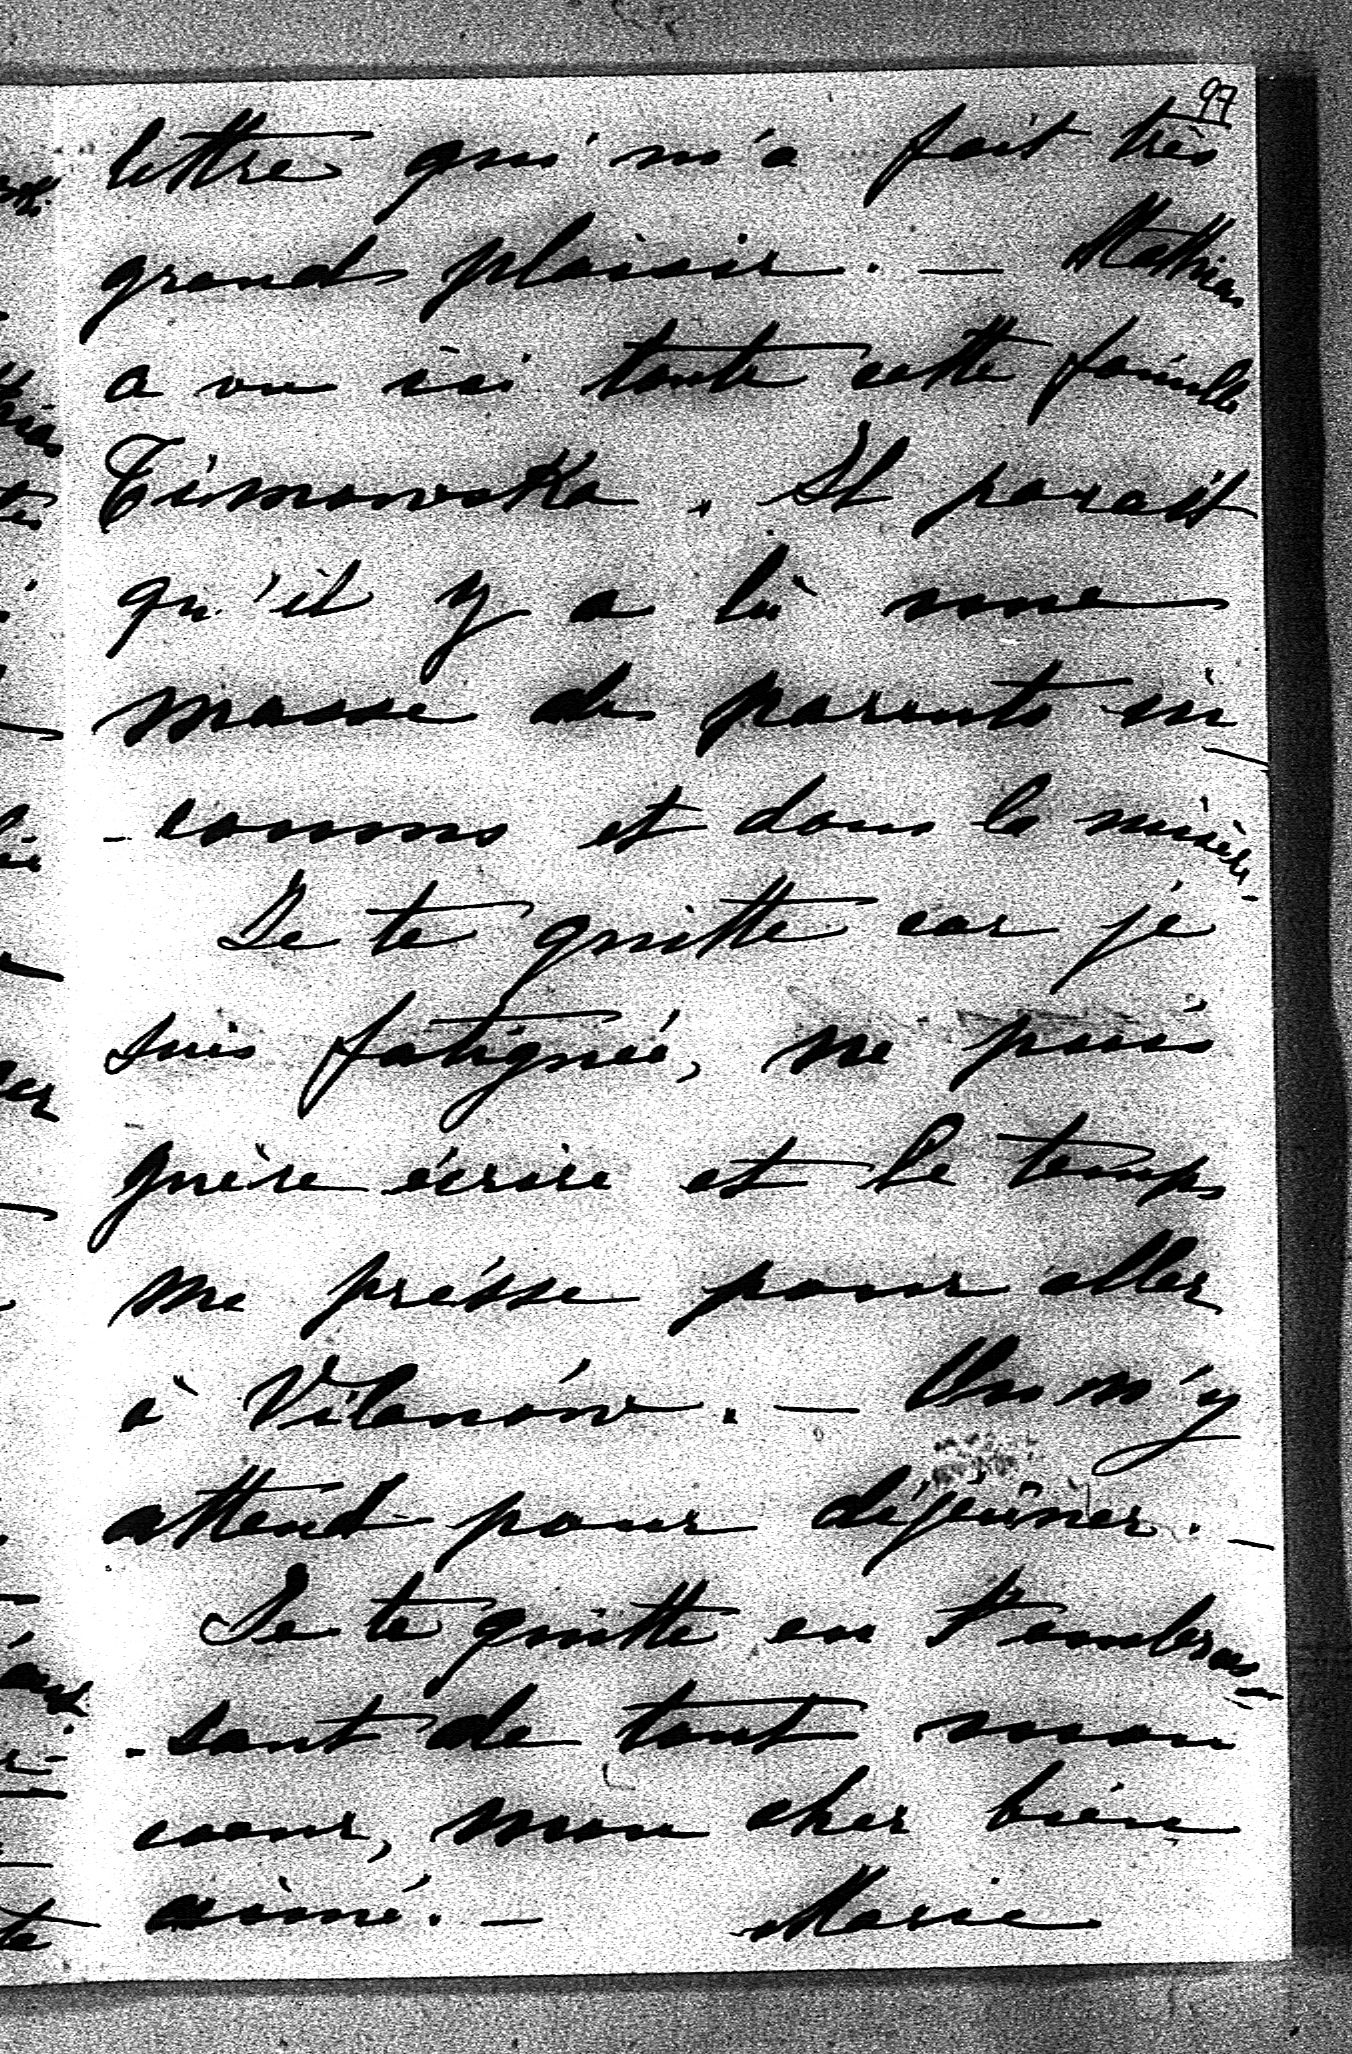 97
lettre qui m'a fait très
grand plaisir. — Mathias
a vu ici toute cette famille
Timowska. Il paraît
qu'il y a là une
masse de parents in
-connus et dans la misère.
Je te quitte car je
suis fatiguée, ne puis
guère écrire et le temps
me présse pour aller
à Vilanów. — On m'y
attend pour déjeûner. —
Je te quitte en t'embras-
-sant de tout mon
coeur, mon cher bien
aimé. — Marie